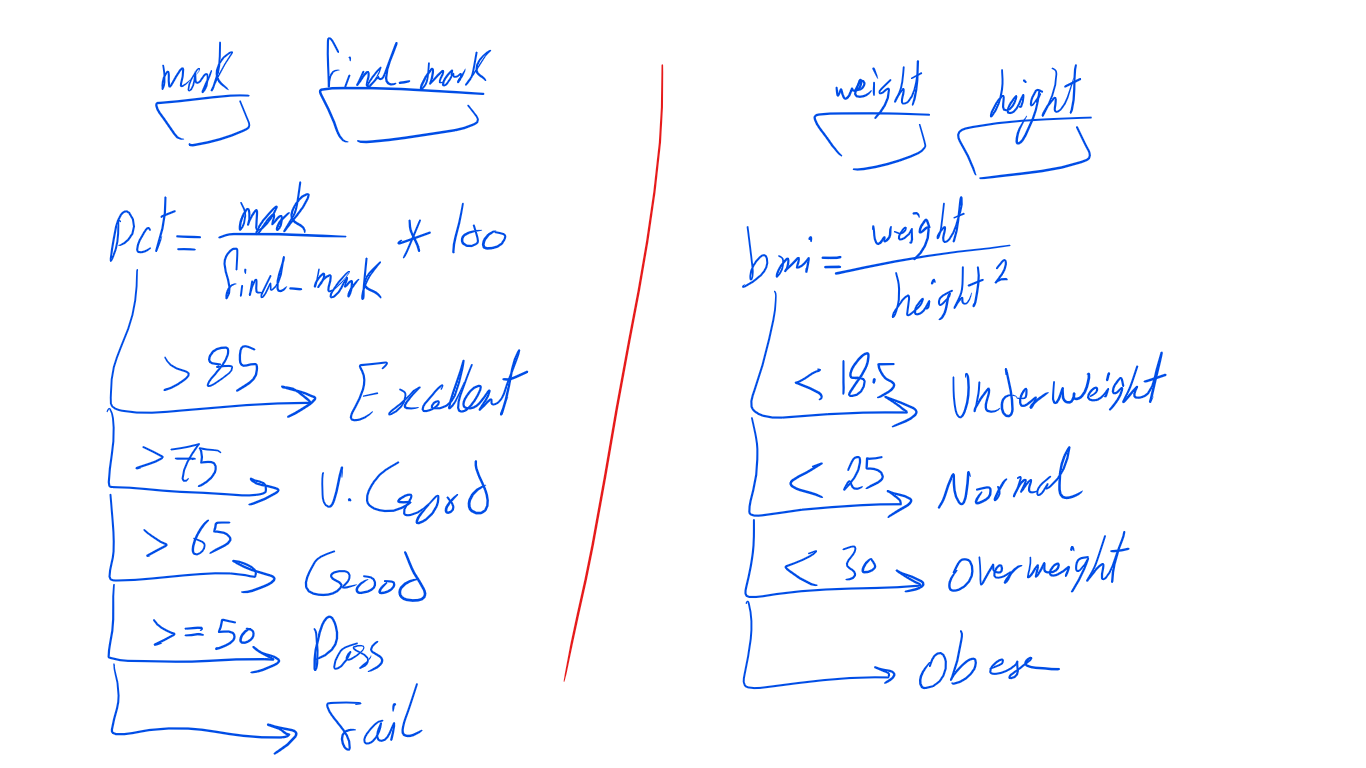 mark final_mark
pct = mark / final_mark * 100
> 85 Excellent
> 75 V. Good
> 65 Good
>= 50 Pass
Fail
weight height
bmi = weight / height²
< 18.5 Underweight
< 25 Normal
< 30 Overweight
Obese